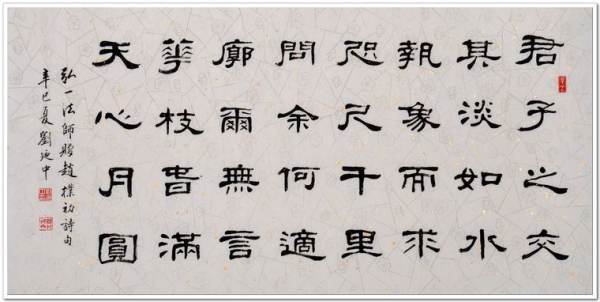 君子之交
其淡如水
執象而求
咫尺千里
問余何適
廓爾無言
華枝春滿
天心月圓
弘一法師贈趙樸初詩句
辛巳夏劉迺中